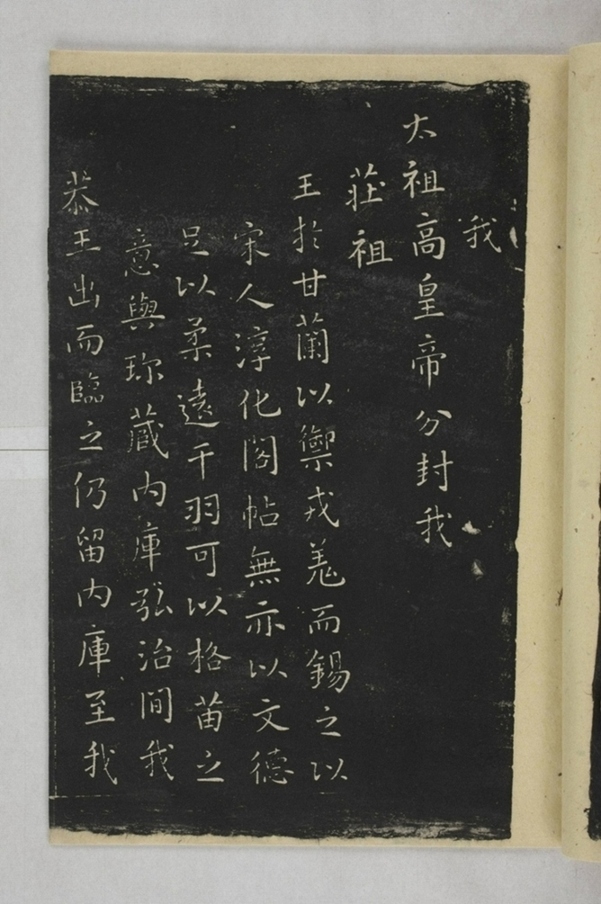 我
太祖高皇帝分封我
莊祖
王於甘蘭以禦戎羗而錫之以
宋人淳化閣帖無亦以文德
足以柔遠干羽可以格苗之
意與珎藏内庫弘治間我
恭王出而臨之仍留内庫至我